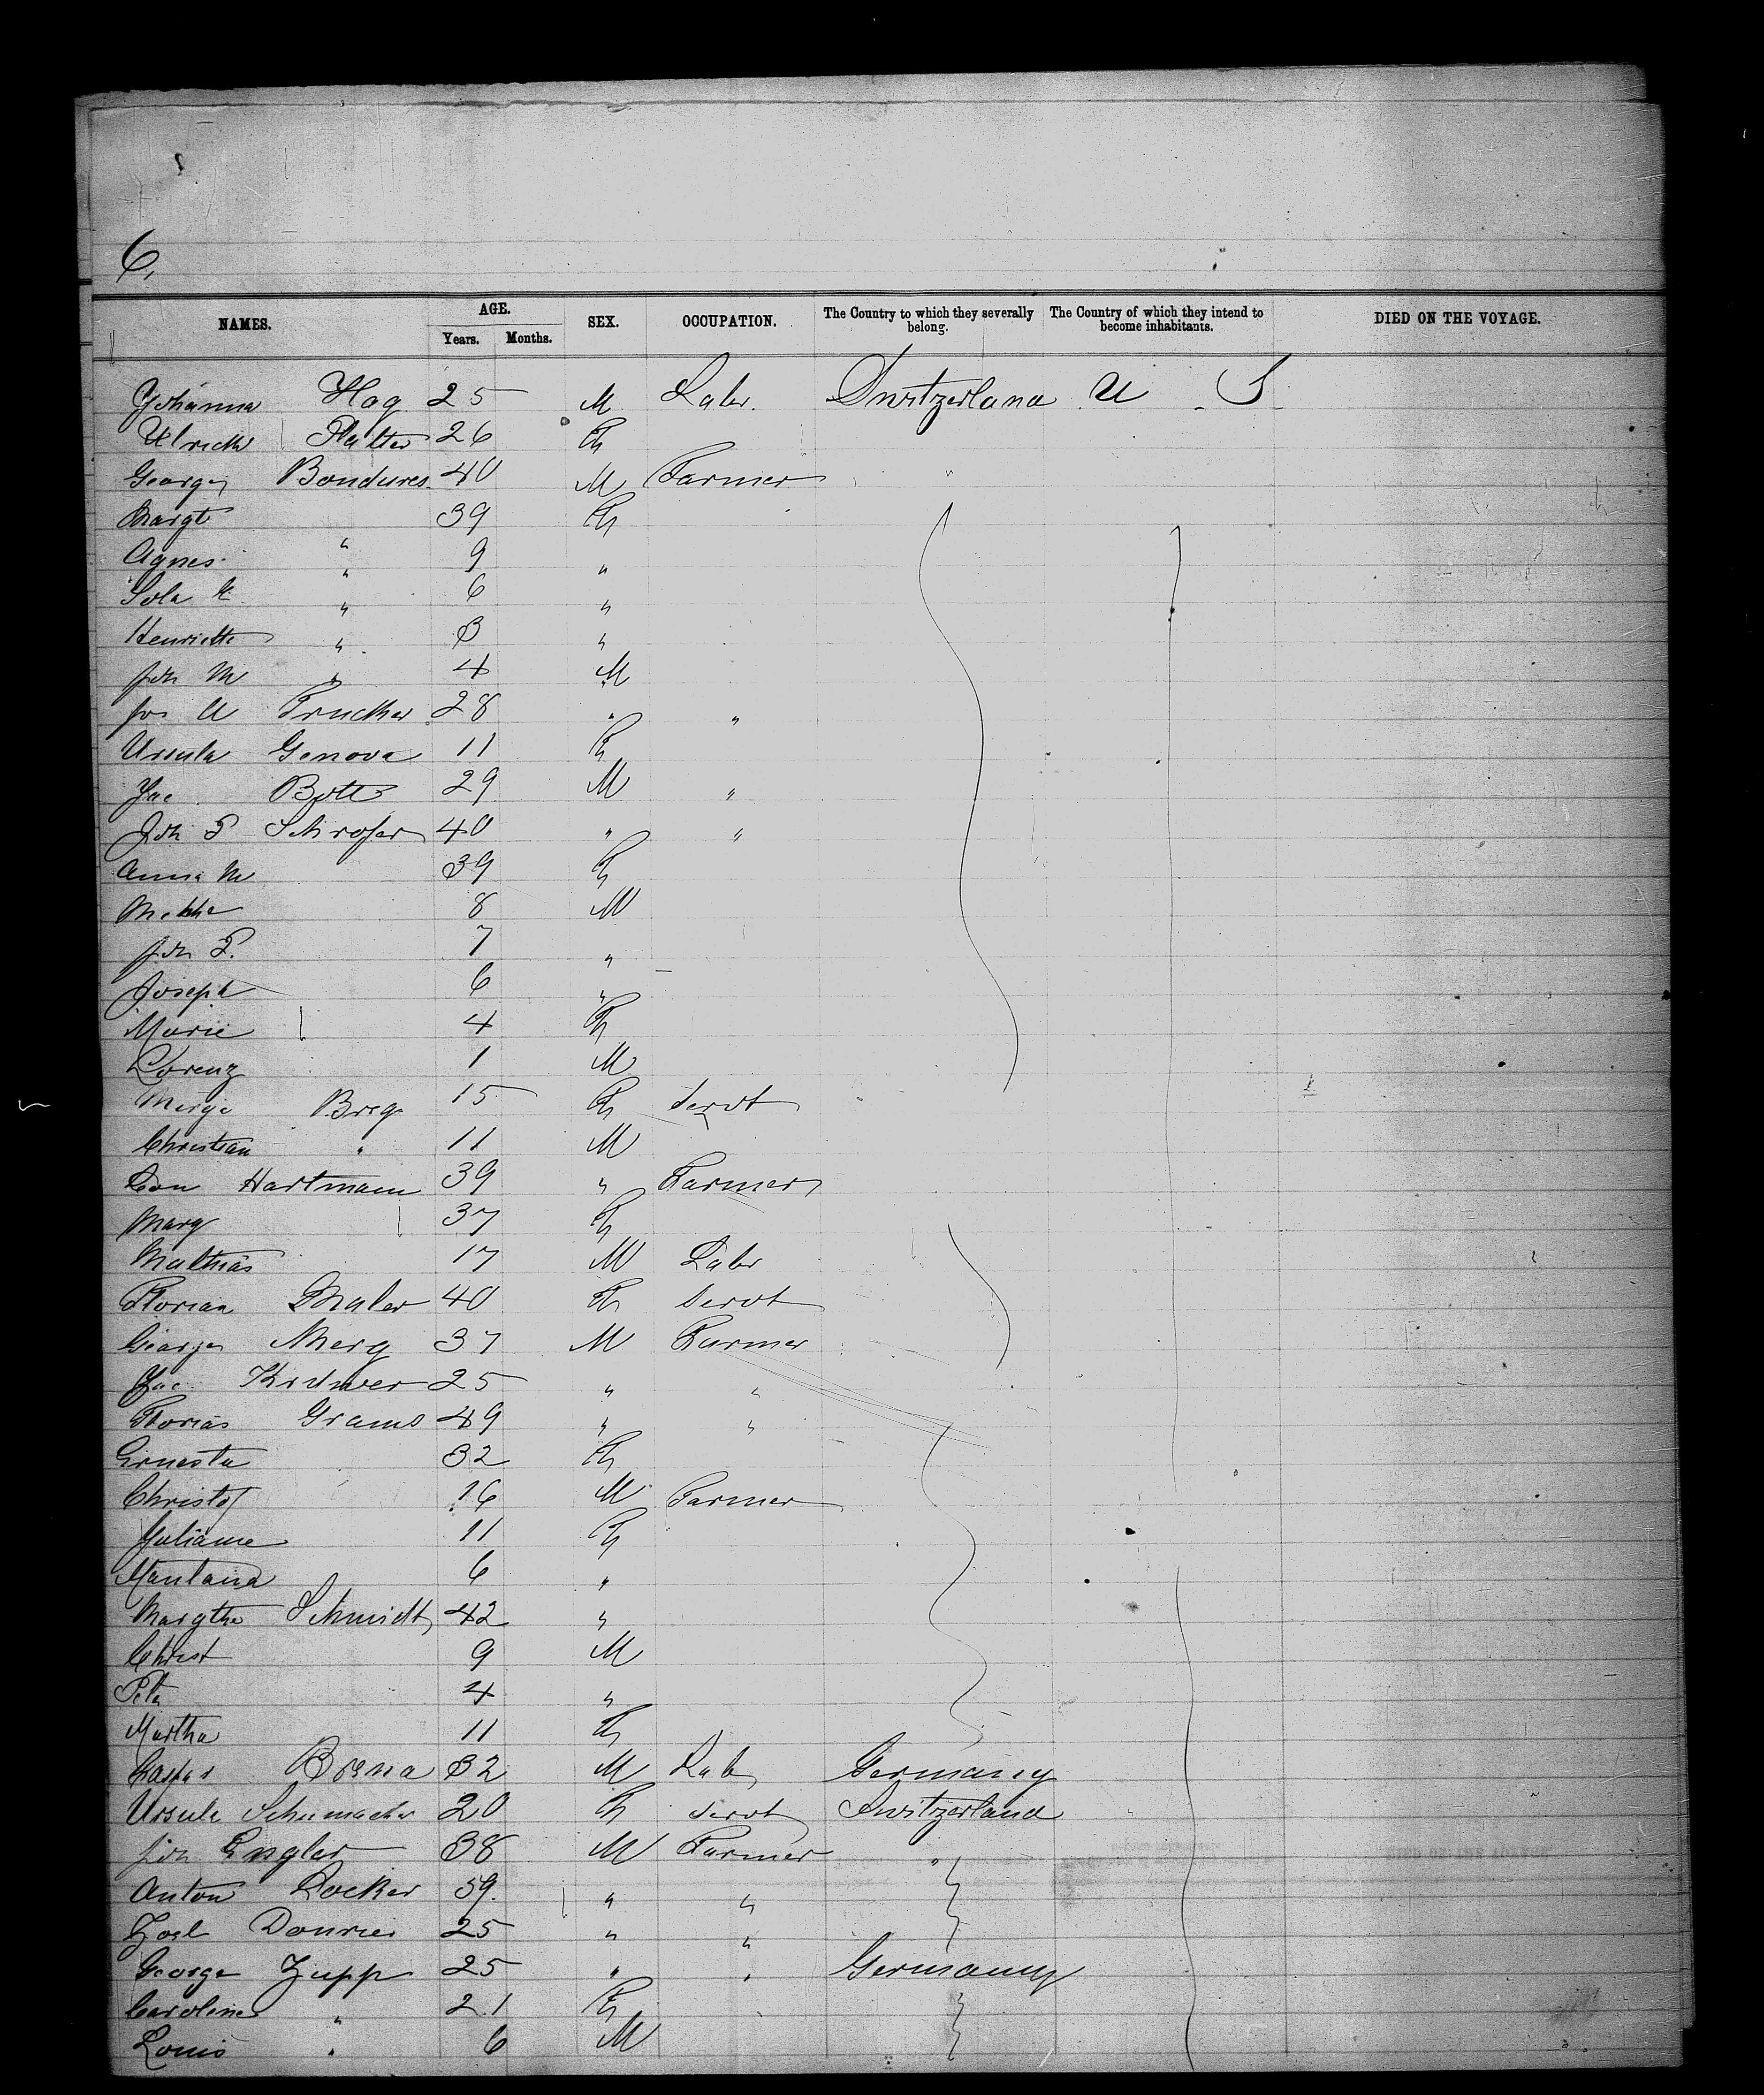 6,
NAMES. AGE. SEX. OCCUPATION. The Country to which they severally belong. The Country of which they intend to become inhabitants. DIED ON THE VOYAGE.
Years. Months.
Johanna Hag 25 M Labr. Switzerland U. S.
Ulrich Platter 26 F
George Bondures 40 M Farmer "
Margt 39 F
Agnes " 9 "
" 6 "
Henriette " 8 "
Joh M " 4 M
Jos A Trucher 28 " "
Ursula Genova 11 F
Jac Bott 29 M "
Joh P Schrofer 40 " "
Anna M 39 F
8 M
Joh P. 7 "
Joseph 6 "
Marie 4 F
Lorenz 1 M
Breg 15 F Servt
Christian " 11 M
Hartmann 39 " Farmer
Marg 37 F
Mathias 17 M Labr
Florian Maler 40 F Servt
George Merg 37 M Farmer
Jac 25 " "
Florias Grams 49 " "
Ernesta 32 F
Christof 16 M Farmer
Juliane 11 F
6 "
Margthe Schmidt 42 "
Christ 9 M
Peter 4 "
Martha 11 F
Caspar 32 M Lab Germany
Ursula Schumacher 20 F Servt Switzerland
Joh Engler 38 M Farmer "
Anton Locker 59. " "
25 " "
George Zupp 25 " " Germany
Caroline " 21 F
Louis " 6 M